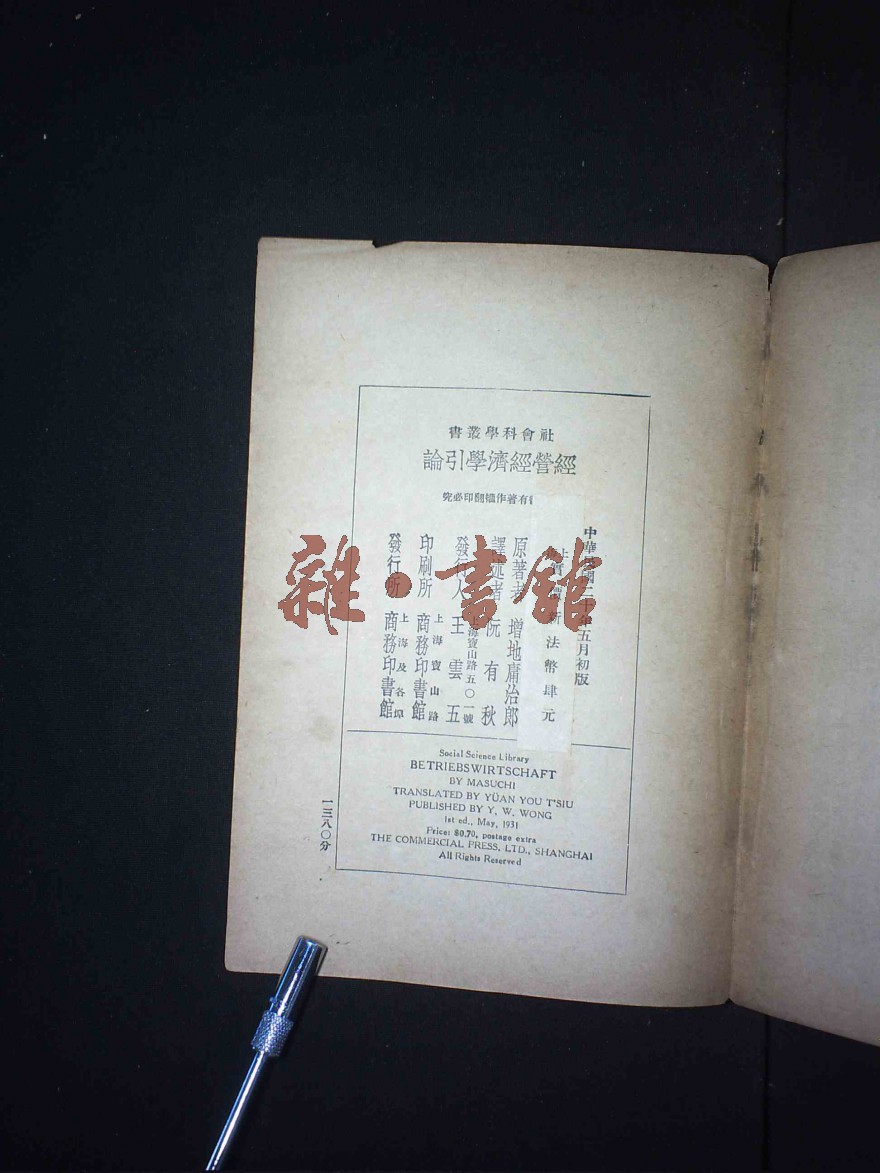 社會科學叢書
經營經濟學引論
有著作權翻印必究
中華民國二十年五月初版
新法幣肆元
原著者 增地庸治郎
譯述者 阮有秋
發行人 王雲五
上海寶山路五〇一號
印刷所 商務印書館
上海寶山路
發行所 商務印書館
上海及各埠
Social Science Library
BETRIEBSWIRTSCHAFT
BY MASUCHI
TRANSLATED BY YÜAN YOU T'SIU
PUBLISHED BY Y. W. WONG
1st ed., May, 1931
Price: $0.70, postage extra
THE COMMERCIAL PRESS, LTD., SHANGHAI
All Rights Reserved
一三八〇分
雜·書館